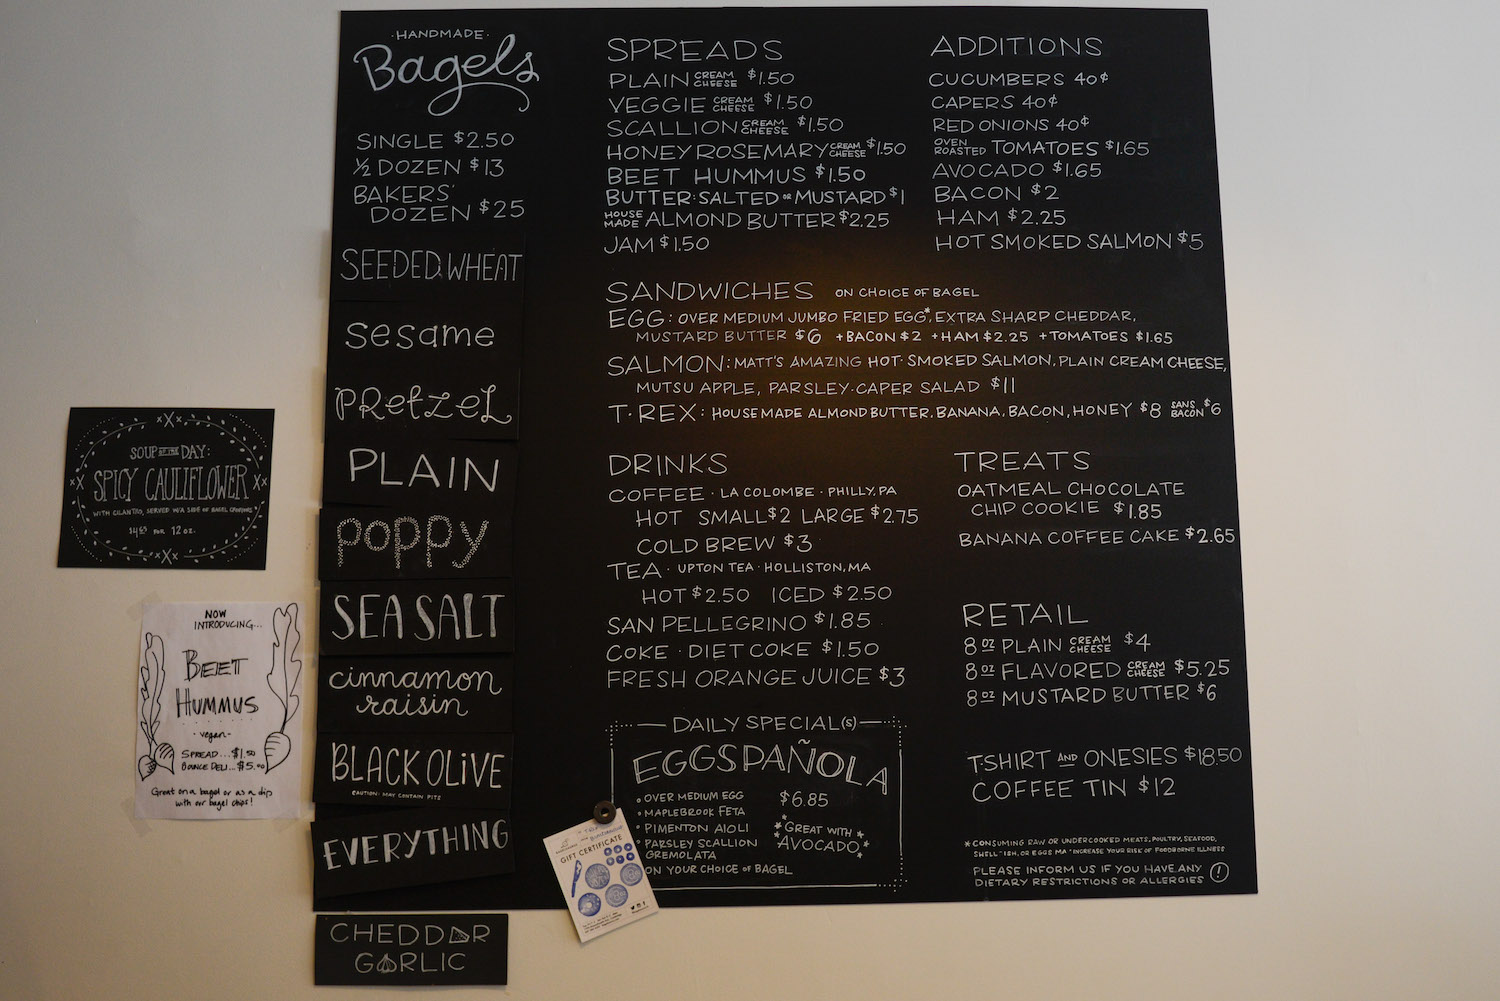 ·HANDMADE·
Bagels
SINGLE $2.50
½ DOZEN $13
BAKERS'
DOZEN $25
SEEDED WHEAT
sesame
PRetzeL
PLAIN
POPPY
SEA SALT
cinnamon
raisin
BLACK OLIVE
CAUTION: MAY CONTAIN PITS
EVERYTHING
CHEDDAR
GARLIC
SPREADS
PLAIN CREAM CHEESE $1.50
VEGGIE CREAM CHEESE $1.50
SCALLION CREAM CHEESE $1.50
HONEY ROSEMARY CREAM CHEESE $1.50
BEET HUMMUS $1.50
BUTTER: SALTED OR MUSTARD $1
HOUSE MADE ALMOND BUTTER $2.25
JAM $1.50
ADDITIONS
CUCUMBERS 40¢
CAPERS 40¢
RED ONIONS 40¢
OVEN ROASTED TOMATOES $1.65
AVOCADO $1.65
BACON $2
HAM $2.25
HOT SMOKED SALMON $5
SANDWICHES ON CHOICE OF BAGEL
EGG: OVER MEDIUM JUMBO FRIED EGG*, EXTRA SHARP CHEDDAR,
MUSTARD BUTTER $6 +BACON $2 +HAM $2.25 +TOMATOES $1.65
SALMON: MATT'S AMAZING HOT-SMOKED SALMON, PLAIN CREAM CHEESE,
MUTSU APPLE, PARSLEY-CAPER SALAD $11
T-REX: HOUSEMADE ALMOND BUTTER, BANANA, BACON, HONEY $8 SANS BACON $6
DRINKS
COFFEE · LA COLOMBE · PHILLY, PA
HOT SMALL $2 LARGE $2.75
COLD BREW $3
TEA · UPTON TEA · HOLLISTON, MA
HOT $2.50 ICED $2.50
SAN PELLEGRINO $1.85
COKE · DIET COKE $1.50
FRESH ORANGE JUICE $3
TREATS
OATMEAL CHOCOLATE
CHIP COOKIE $1.85
BANANA COFFEE CAKE $2.65
RETAIL
8 OZ PLAIN CREAM CHEESE $4
8 OZ FLAVORED CREAM CHEESE $5.25
8 OZ MUSTARD BUTTER $6
T-SHIRT AND ONESIES $18.50
COFFEE TIN $12
*CONSUMING RAW OR UNDERCOOKED MEATS, POULTRY, SEAFOOD,
SHELLFISH, OR EGGS MAY INCREASE YOUR RISK OF FOODBORNE ILLNESS
PLEASE INFORM US IF YOU HAVE ANY
DIETARY RESTRICTIONS OR ALLERGIES !
DAILY SPECIAL(S)
EGGSPAÑOLA
• OVER MEDIUM EGG $6.85
• MAPLEBROOK FETA
• PIMENTON AIOLI
• PARSLEY SCALLION
GREMOLATA
ON YOUR CHOICE OF BAGEL
*GREAT WITH*
*AVOCADO*
GIFT CERTIFICATE
SOUP OF THE DAY:
SPICY CAULIFLOWER
WITH CILANTRO, SERVED W/A SIDE OF BAGEL CROUTONS
$4.65 FOR 12 oz.
NOW
INTRODUCING...
BEET
HUMMUS
-vegan-
SPREAD...$1.50
BOUNCE DELI...$5.00
Great on a bagel or as a dip
with our bagel chips!